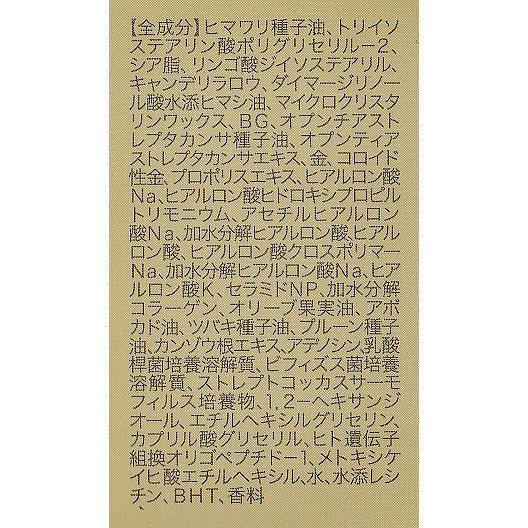 【全成分】ヒマワリ種子油、トリイソ
ステアリン酸ポリグリセリル-2、
シア脂、リンゴ酸ジイソステアリル、
キャンデリラロウ、ダイマージリノー
ル酸水添ヒマシ油、マイクロクリスタ
リンワックス、BG、オプンチアスト
レプタカンサ種子油、オプンティア
ストレプタカンサエキス、金、コロイド
性金、プロポリスエキス、ヒアルロン酸
Na、ヒアルロン酸ヒドロキシプロピル
トリモニウム、アセチルヒアルロン
酸Na、加水分解ヒアルロン酸、ヒアル
ロン酸、ヒアルロン酸クロスポリマー
Na、加水分解ヒアルロン酸Na、ヒア
ルロン酸K、セラミドNP、加水分解
コラーゲン、オリーブ果実油、アボ
カド油、ツバキ種子油、プルーン種子
油、カンゾウ根エキス、アデノシン、乳酸
桿菌培養溶解質、ビフィズス菌培養
溶解質、ストレプトコッカスサーモ
フィルス培養物、1,2-ヘキサンジ
オール、エチルヘキシルグリセリン、
カプリル酸グリセリル、ヒト遺伝子
組換オリゴペプチド-1、メトキシケ
イヒ酸エチルヘキシル、水、水添レシ
チン、BHT、香料